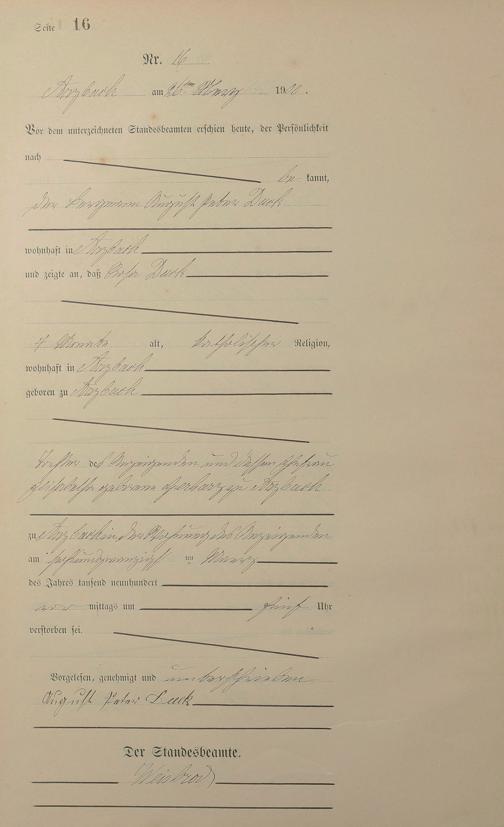 Seite 16
Nr. 16
Arzbach am 26ten März 1900.
Vor dem unterzeichneten Standesbeamten erschien heute, der Persönlichkeit
nach
be kannt,
der Bergmann August Peter Duck
wohnhaft in Arzbach
und zeigte an, daß Rosa Duck
7 Monate alt, katholischer Religion,
wohnhaft in Arzbach
geboren zu Arzbach
Tochter des Anzeigenden und dessen Ehefrau
Elisabetha geborene zu Arzbach
zu Arzbach in der Wohnung des Anzeigenden
am sechsundzwanzigsten März
des Jahres tausend neunhundert
mittags um fünf Uhr
verstorben sei.
Vorgelesen, genehmigt und unterschrieben
August Peter Duck
Der Standesbeamte.
Weisbrod